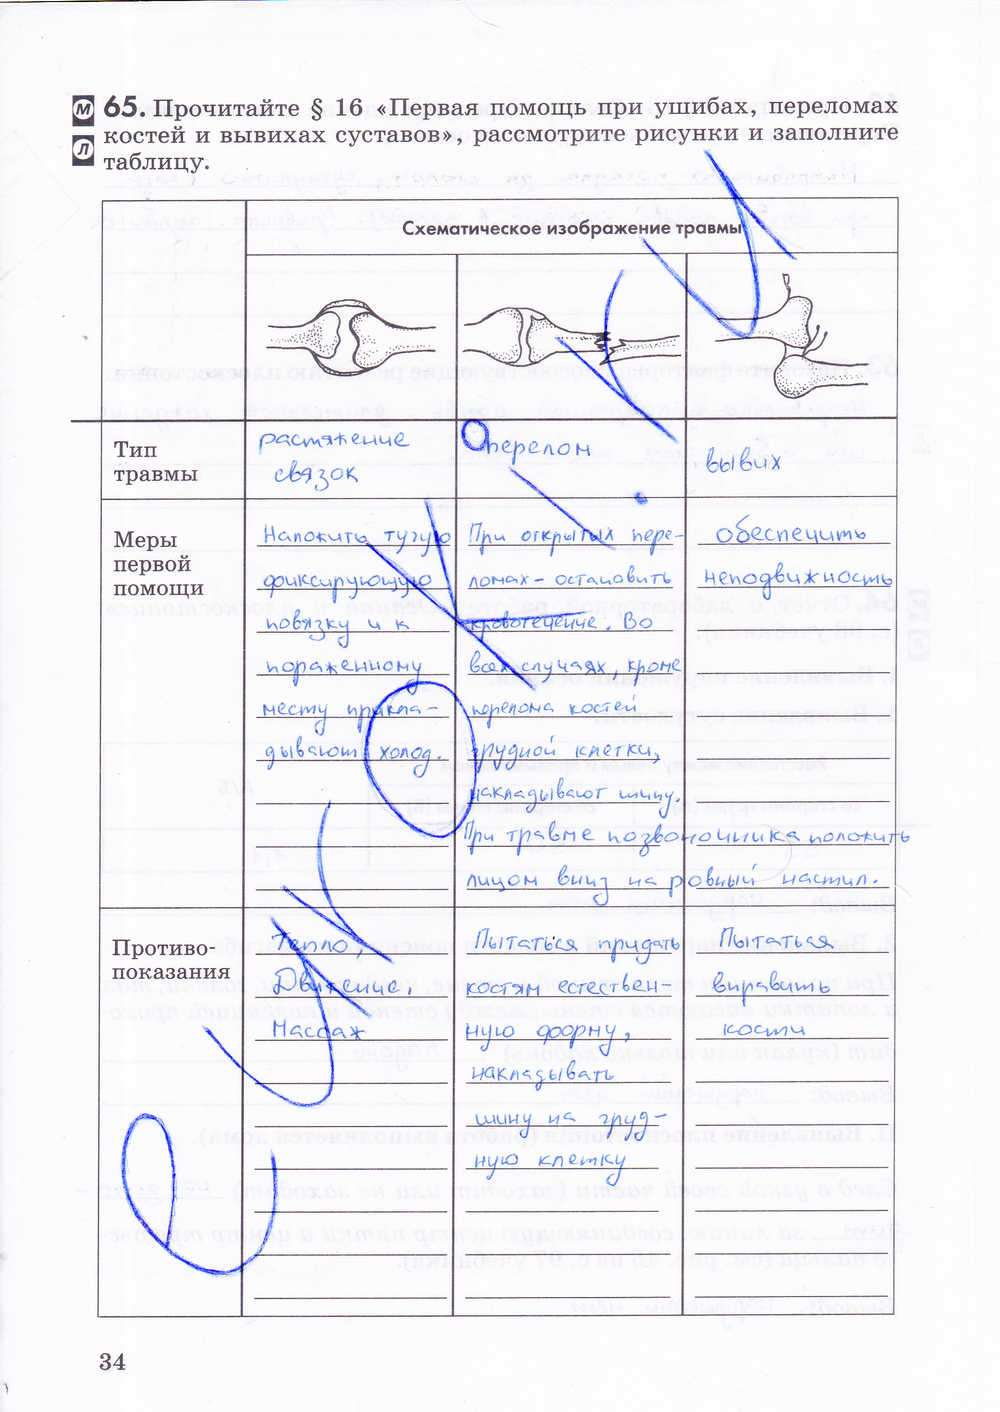 М 65. Прочитайте § 16 «Первая помощь при ушибах, переломах
Л костей и вывихах суставов», рассмотрите рисунки и заполните
таблицу.
Схематическое изображение травмы
Тип
травмы
растяжение
связок
перелом
вывих
Меры
первой
помощи
Наложить тугую
фиксирующую
повязку и к
пораженному
месту прикла-
дывают холод.
При открытых пере-
ломах - остановить
кровотечение. Во
всех случаях, кроме
перелома костей
грудной клетки,
накладывают шину.
При травме позвоночника положить
лицом вниз на ровный настил.
обеспечить
неподвижность
Противо-
показания
Тепло,
Движение,
Массаж
Пытаться придать
костям естествен-
ную форму,
накладывать
шину на груд-
ную клетку
Пытаться
вправить
кости
34